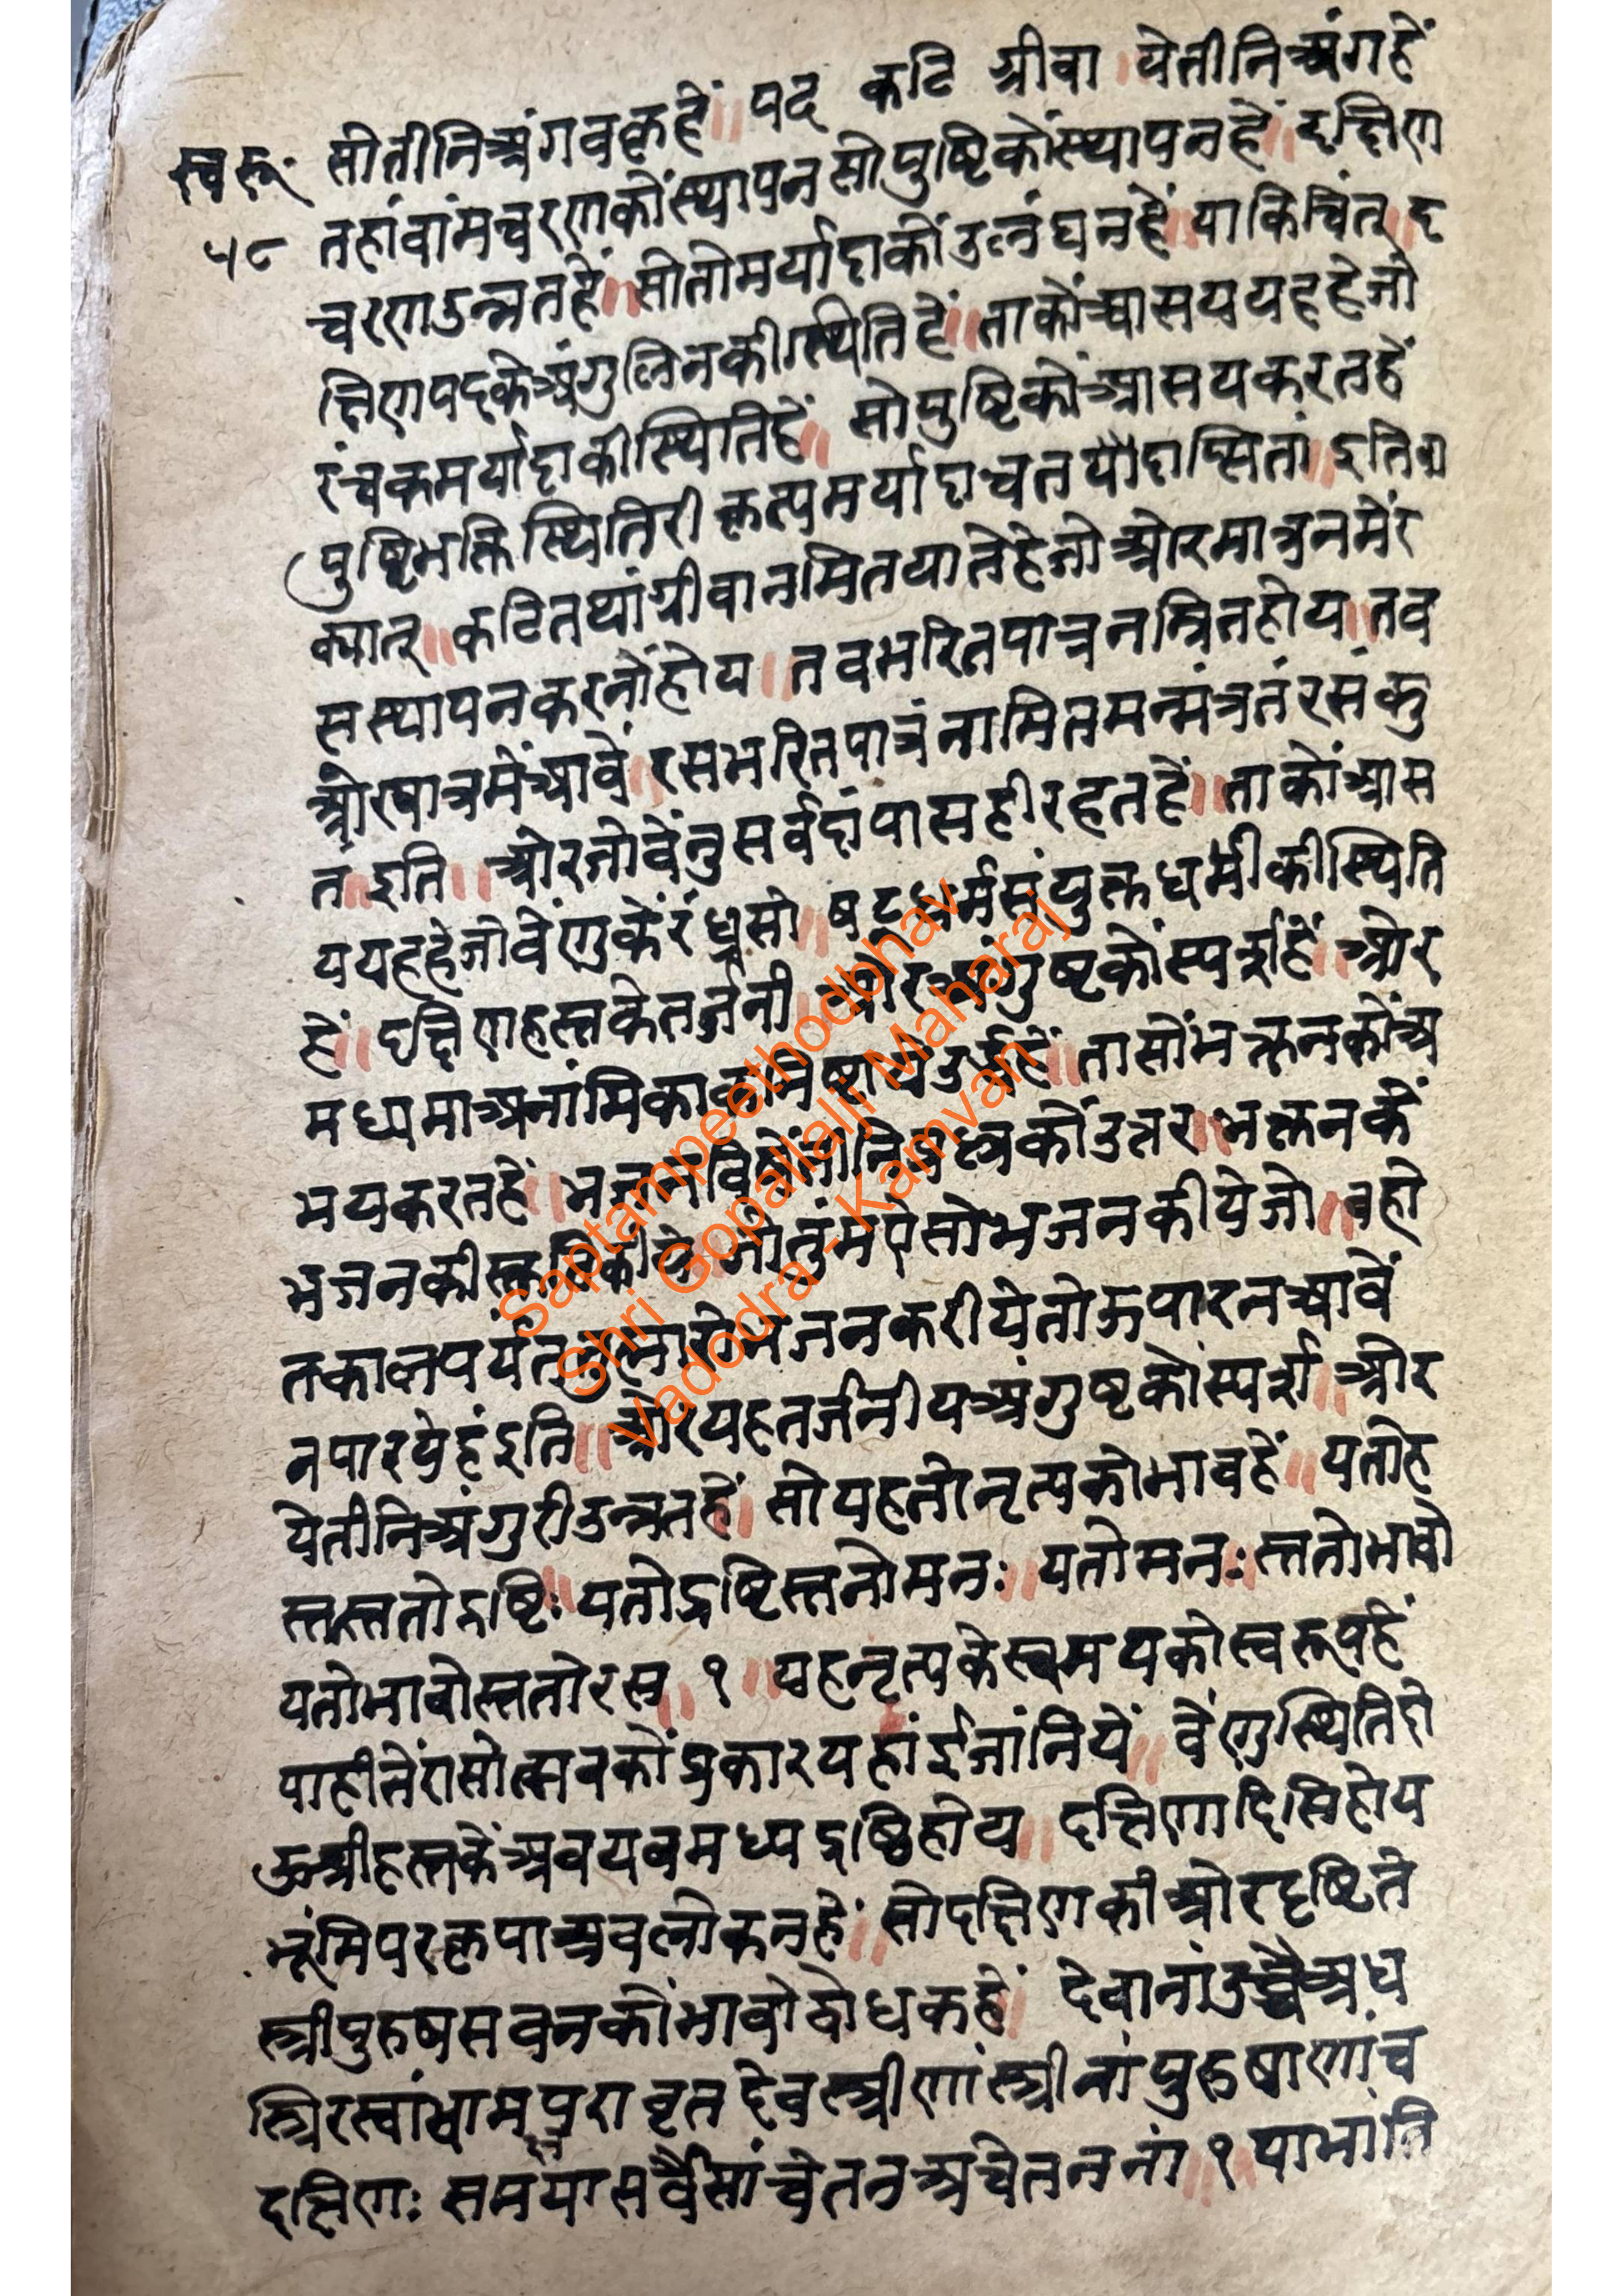 सोतीनिअंगवक्रहें॥ पद कटि ग्रीवा ।येतीनिअंगहें
स्वरू.
तहांवांमचरणकोंस्थापनसोपुष्टिकोंस्थापनहें॥ दक्षिण
५८
चरणउन्नतहें॥ सोतोमर्यादाकोंउल्लंघनहें॥ याकिंचित्॥ द
क्षिणपदकेअंगुलिनकीस्थितिहें॥ ताकोंआसययहहेजो
रंचकमर्यादाकीस्थितिहें॥ सोपुष्टिकोंआसयकरतहें
पुष्टिभक्तिस्थितिरीकृत्यमर्यादाचतयोदास्मितां॥ इतिवा
क्यात्॥ कटितथांग्रीवानमितयातेहेजोओरमात्रनमेंर
सस्थापनकरनोंहोय॥ तवभरितपात्रनम्रितहोय॥ तव
ओरपात्रमेंआवे॥ रसभरितपात्रंनामितमन्मंत्रतंरसंकु
त॥ इति॥ ओरजोवेंनुसर्वदांपासहीरहतहें॥ ताकोंआस
ययहहेजोवेंणुकेंरंध्रसो॥ षट्धर्मसंयुक्तधर्मीकीस्थिति
हें॥ दक्षिणहस्तकेतर्जनी ओरअंगुष्टकोंस्पर्शहें॥ ओर
मध्यमाअनांमिकाकनिष्टायेउर्द्धहें॥ तासोंभक्तनकोंअ
भयकरतहें॥ भजनविषेंतीनिप्रश्नकोंउत्तर॥ भक्तनकें
भजनकीस्तुतिकीये॥ जोतुंमऐसोभजनकीयेजो॥ वहो
तकालपर्यंततुह्मारोभजनकरीयेतोऊपारनआवें
नपारयेहंइति॥ ओरयहतर्जनीयअंगुष्टकोस्पर्श॥ ओर
येतीनिअंगुरीउन्नतहें॥ सोयहतोनृत्यकोभावहें॥ यतोह
स्तस्ततोद्दष्टिः॥ यतोद्दष्टिस्ततोमनः॥ यतोमनः॥ स्ततोभावो
यतोभावोस्ततोरस॥ १ ॥ यहनृत्यकेस्वमयकोस्वरूपहें
याहीतेंरासोत्सवकोंप्रकारयहांईजांनियें॥ वेंणुस्थितिहो
ऊश्रीहस्तकेंअवयवमध्यद्दष्टिहोय॥ दक्षिणादिसिहोय
भूंमिपरकृपाअवलोकनहें॥ सोदक्षिणकीओरदृष्टिते
स्त्रीपुरुषसवनकोंभावोद्वोधकहें॥ देवानांउच्चैअध
स्त्रिरस्वांध्वामपुरावृतदेवस्त्रीणांस्त्रीनांपुरुषाणांच
दक्षिणः समयासर्वैसांचेतनअचेतननां॥ १ ॥ याभांति
Saptampeethodbhav
Shri Gopallalji Maharaj
Vadodra - Kamvan